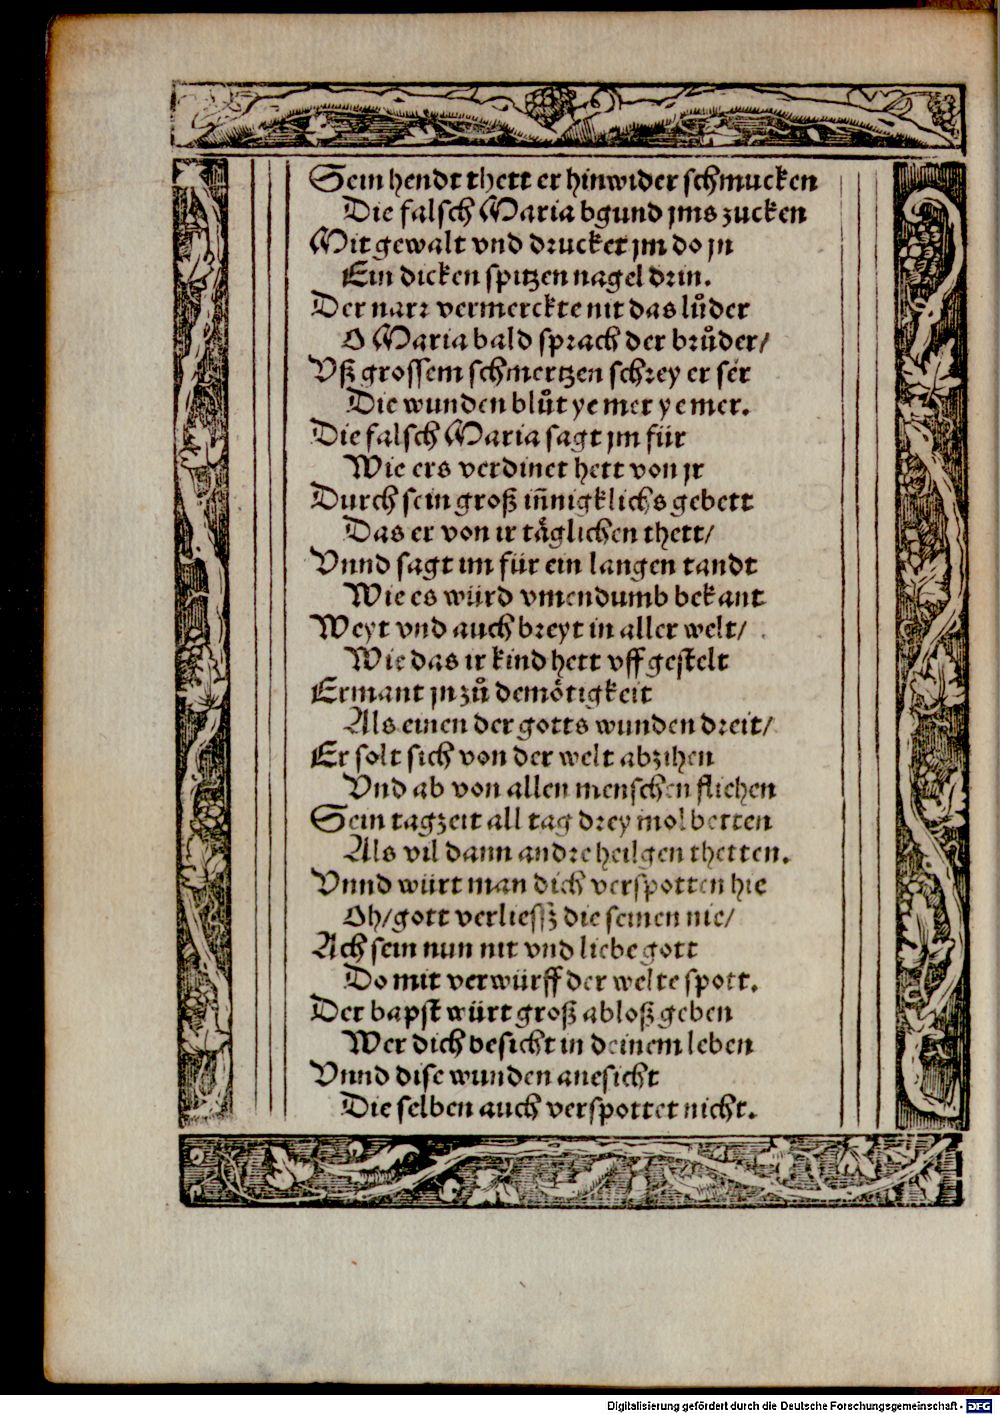 Sein hendt thett er hinwider schmucken
Die falsch Maria bgund jms zucken
Mit gewalt vnd drucket jm do jn
Ein dicken spitzen nagel drin.
Der narr vermerckte nit das lůder
O Maria bald sprach der brůder/
Vß grossem schmertzen schrey er sér
Die wunden blůt ye mer ye mer.
Die falsch Maria sagt jm für
Wie ers verdinet hett von jr
Durch sein groß iñnigklichs gebett
Das er von ir täglichen thett/
Vnnd sagt im für ein langen tandt
Wie es würd vmendumb bekant
Weyt vnd auch breyt in aller welt/
Wie das ir kind hett vff gestelt
Ermant jn zů demötigkeit
Als einen der gotts wunden dreit/
Er solt sich von der welt abzihen
Vnd ab von allen menschen fliehen
Sein tagzeit all tag drey mol betten
Als vil dann andre heilgen thetten.
Vnnd würt man dich verspotten hie
Oh/gott verliessz die seinen nie/
Ach sein nun nit vnd liebe gott
Do mit verwürff der welte spott.
Der bapst würt groß abloß geben
Wer dich besicht in deinem leben
Vnnd dise wunden anesicht
Die selben auch verspottet nicht.
Digitalisierung gefördert durch die Deutsche Forschungsgemeinschaft - DFG